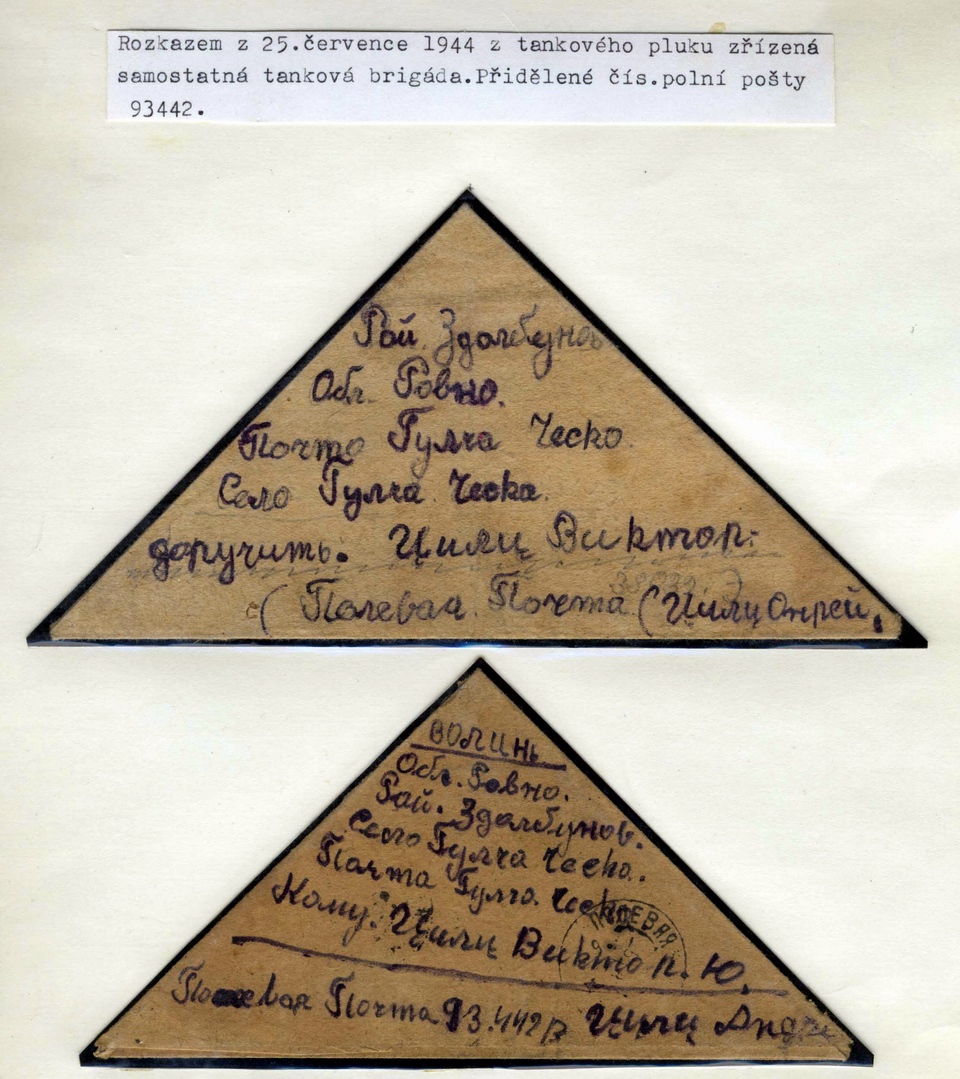 Rozkazem z 25.července 1944 z tankového pluku zřízená
samostatná tanková brigáda.Přidělené čís.polní pošty
93442.
Рай. Здолбунов
Обл. Ровно.
Почто Гулча Ческо.
Село Гулча Ческа.
доручить. Цилц Виктор.
(Полевая Почта (Цилц Онрей.
ВОЛИНЬ
Обл. Ровно.
Рай. Здолбунов.
Село Гулча Ческа.
Почта Гулча Ческо
Кому. Цилц Виктор. Ю.
ПОЛЕВАЯ
Полевая Почта 93.442/В Цилц Андре